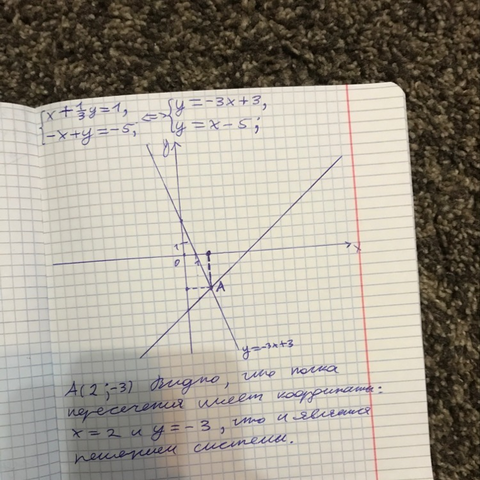 {x+⅓y=1, <=> {y=-3x+3,
{-x+y=-5; {y=x-5;
y
1
0 1 x
A
y=-3x+3
A(2;-3) Видно, что точка
пересечения имеет координаты:
x=2 и y=-3, что и является
решением системы.